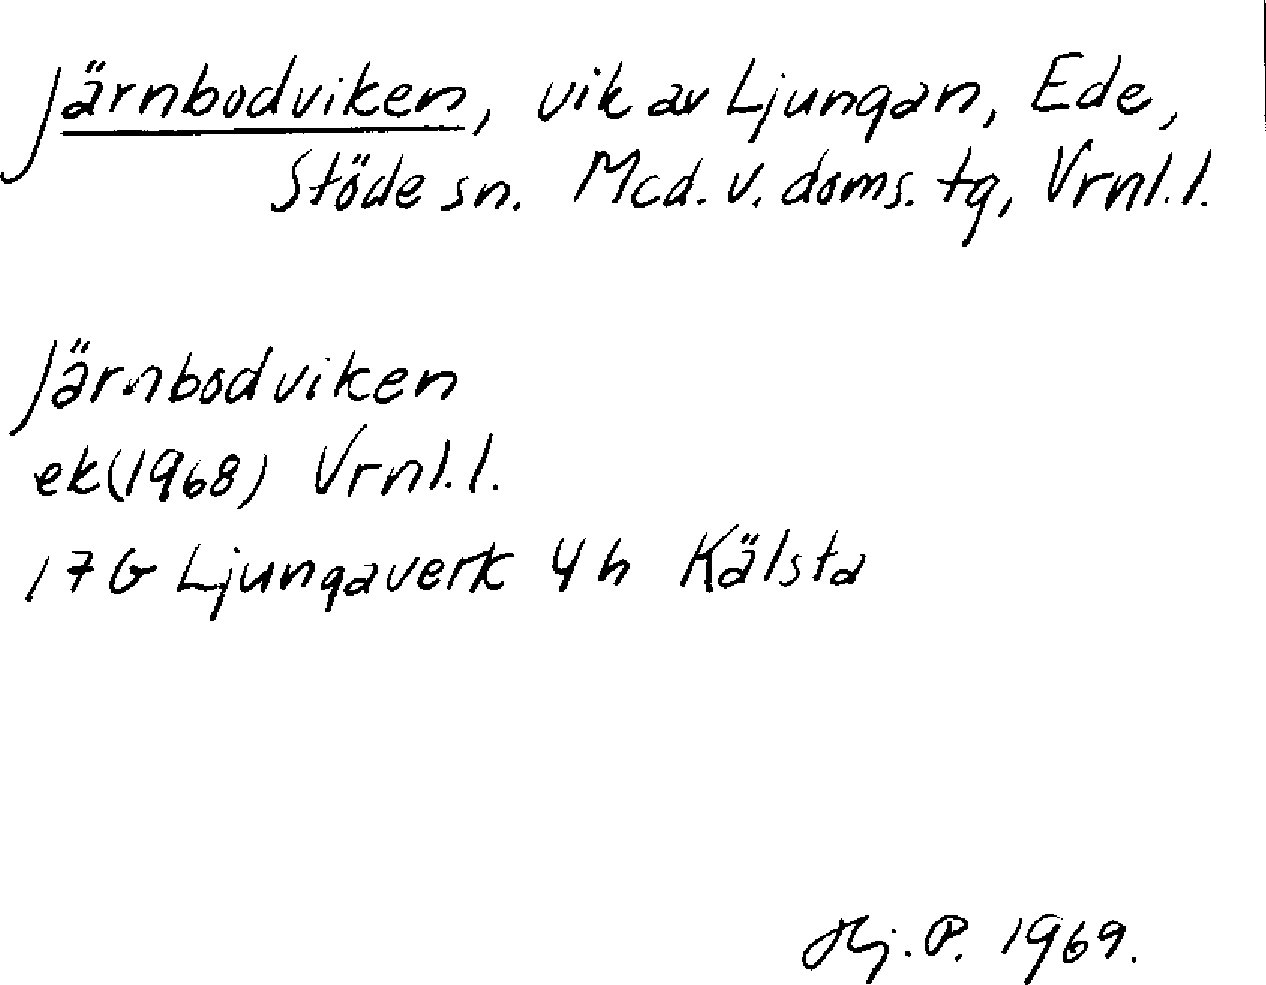 Järnbodviken, vik av Ljungan, Ede,
Stöde sn. Mcd. v. doms. tg, Vrnl. l.
Järnbodviken
ek (1968) Vrnl. l.
17 G Ljungaverk 4 h Kälsta
Hj. P. 1969.